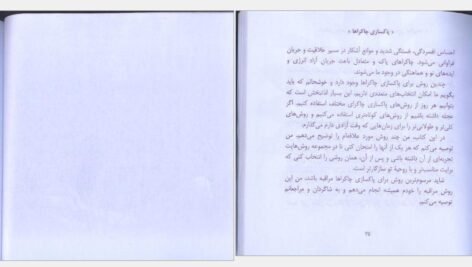 « پاکسازی چاکراها »
احساس افسردگی، خستگی شدید و موانع آشکار در مسیر خلاقیت و جریان
فراوانی می‌شود. چاکراهای پاک و متعادل باعث جریان آزاد انرژی و
ایده‌های نو و هماهنگی در وجود ما می‌شوند.
چندین روش برای پاکسازی چاکراها وجود دارد و خوشحالتم که باید
بگویم ما امکان انتخاب‌های متعددی داریم. این بسیار لذتبخش است که
بتوانیم هر روز از روش‌های پاکسازی چاکرای مختلف استفاده کنیم. اگر
عجله داشته باشیم از روش‌های کوتاه‌تری استفاده می‌کنیم و روش‌های
کلی‌تر و طولانی‌تر را برای زمان‌هایی که وقت آزادی دارم می‌گذارم.
در این کتاب، من چند روش مورد علاقه‌ام را توضیح می‌دهم. من
توصیه می‌کنم که هر یک از آنها را امتحان کنی تا در مجموعه روش‌هایت
تجربه‌ای از آن داشته باشی و پس از آن، همان روشی را انتخاب کنی که
برایت مناسب‌تر و با روحیهٔ تو سازگارتر است.
شاید مرسوم‌ترین روش برای پاکسازی چاکراها مراقبه باشد، من این
روش مراقبه را خودم همیشه انجام می‌دهم و به شاگردان و مراجعانم
توصیه می‌کنم.
۲۵